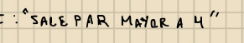 : "SALE PAR MAYOR A 4"